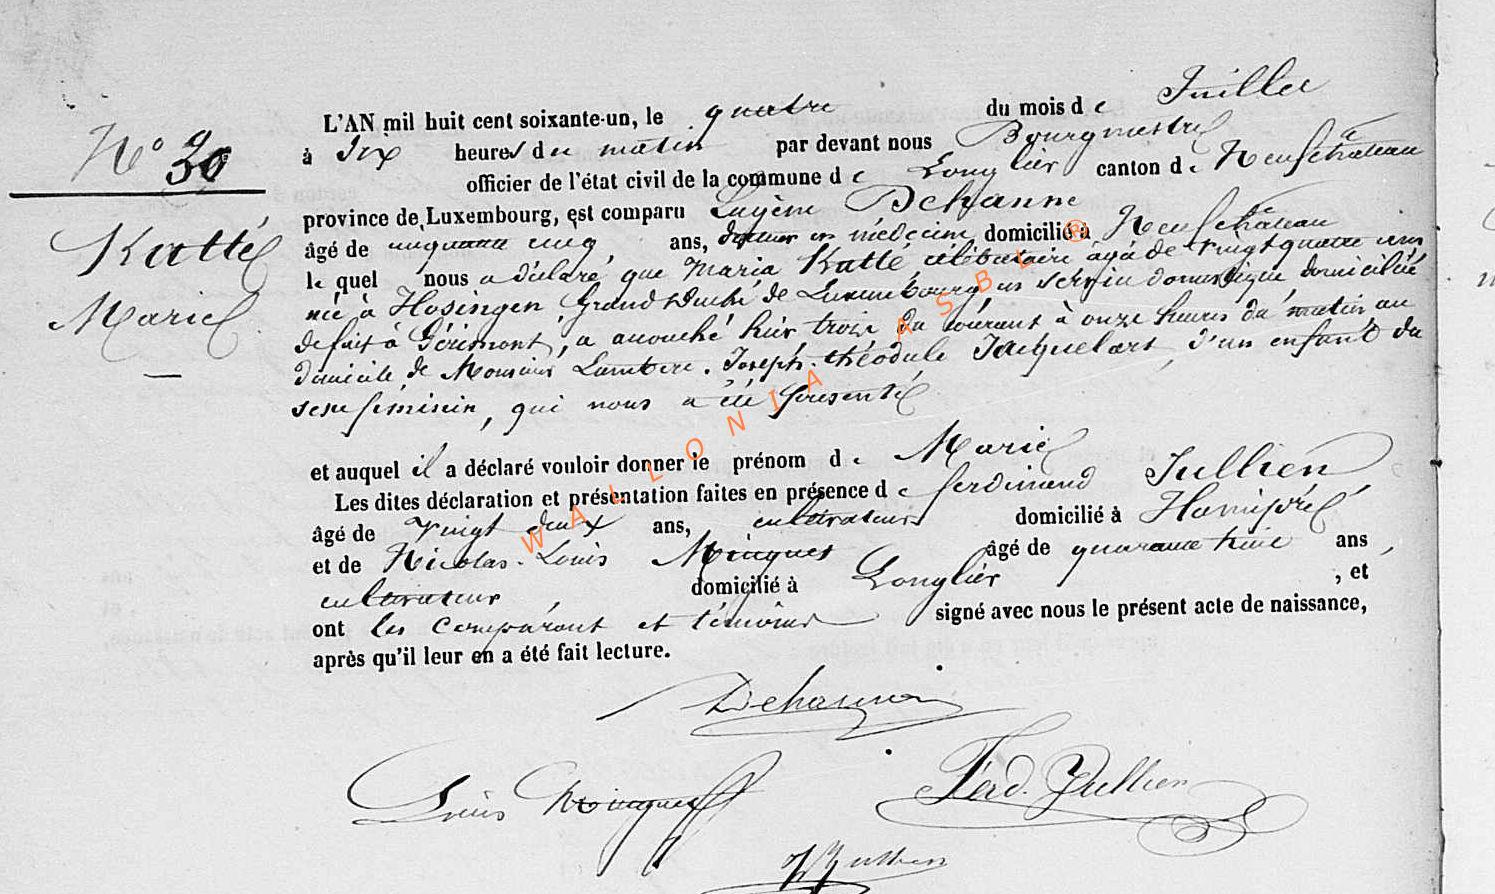 N° 30
Katté
Marie
L'AN mil huit cent soixante-un, le quatre du mois de Juillet
à Six heures du matin par devant nous Bourgmestre
officier de l'état civil de la commune de Longlier canton de Neufchâteau
province de Luxembourg, est comparu Eugène Dehanne
âgé de cinquante cinq ans, docteur en médecine domicilié à Neufchâteau
lequel nous a déclaré que Maria Katté, célibataire âgé de vingt quatre ans
née à Hosingen, Grand Duché de Luxembourg, en service domestique, domiciliée
de fait à Gérimont, a accouché hier, trois du courant à onze heures du matin au
domicile de Monsieur Lambert. Joseph. théodule Jacquelart, d'un enfant du
sexe féminin, qui nous a été présenté
et auquel il a déclaré vouloir donner le prénom de Marie
Les dites déclaration et présentation faites en présence de ferdinand Jullien
âgé de Vingt deux ans, cultivateur domicilié à Hamipré
et de Nicolas. Louis Minguet âgé de quarante trois ans,
cultivateur, domicilié à Longlier, et
ont les comparant et témoins signé avec nous le présent acte de naissance,
après qu'il leur en a été fait lecture.
Dehanne
Louis Minguet Ferd. Jullien
Jullien
WALLONIA ASBL ®